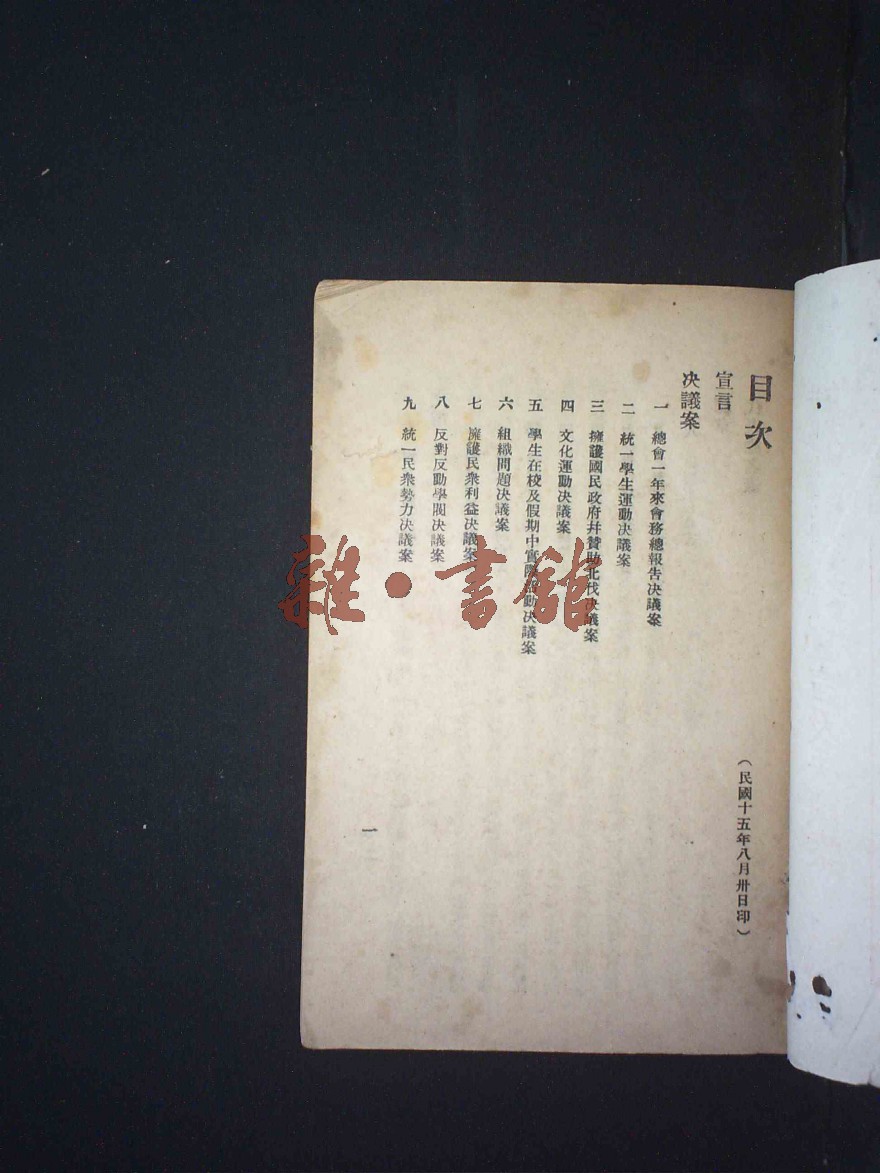 目次
（民國十五年八月卅日印）
宣言
决議案
一 總會一年來會務總報告决議案
二 統一學生運動决議案
三 擁護國民政府并贊助北伐决議案
四 文化運動决議案
五 學生在校及假期中實際活動决議案
六 組織問題决議案
七 擁護民衆利益决議案
八 反對反動學閥决議案
九 統一民衆勢力决議案
一
雜·書館